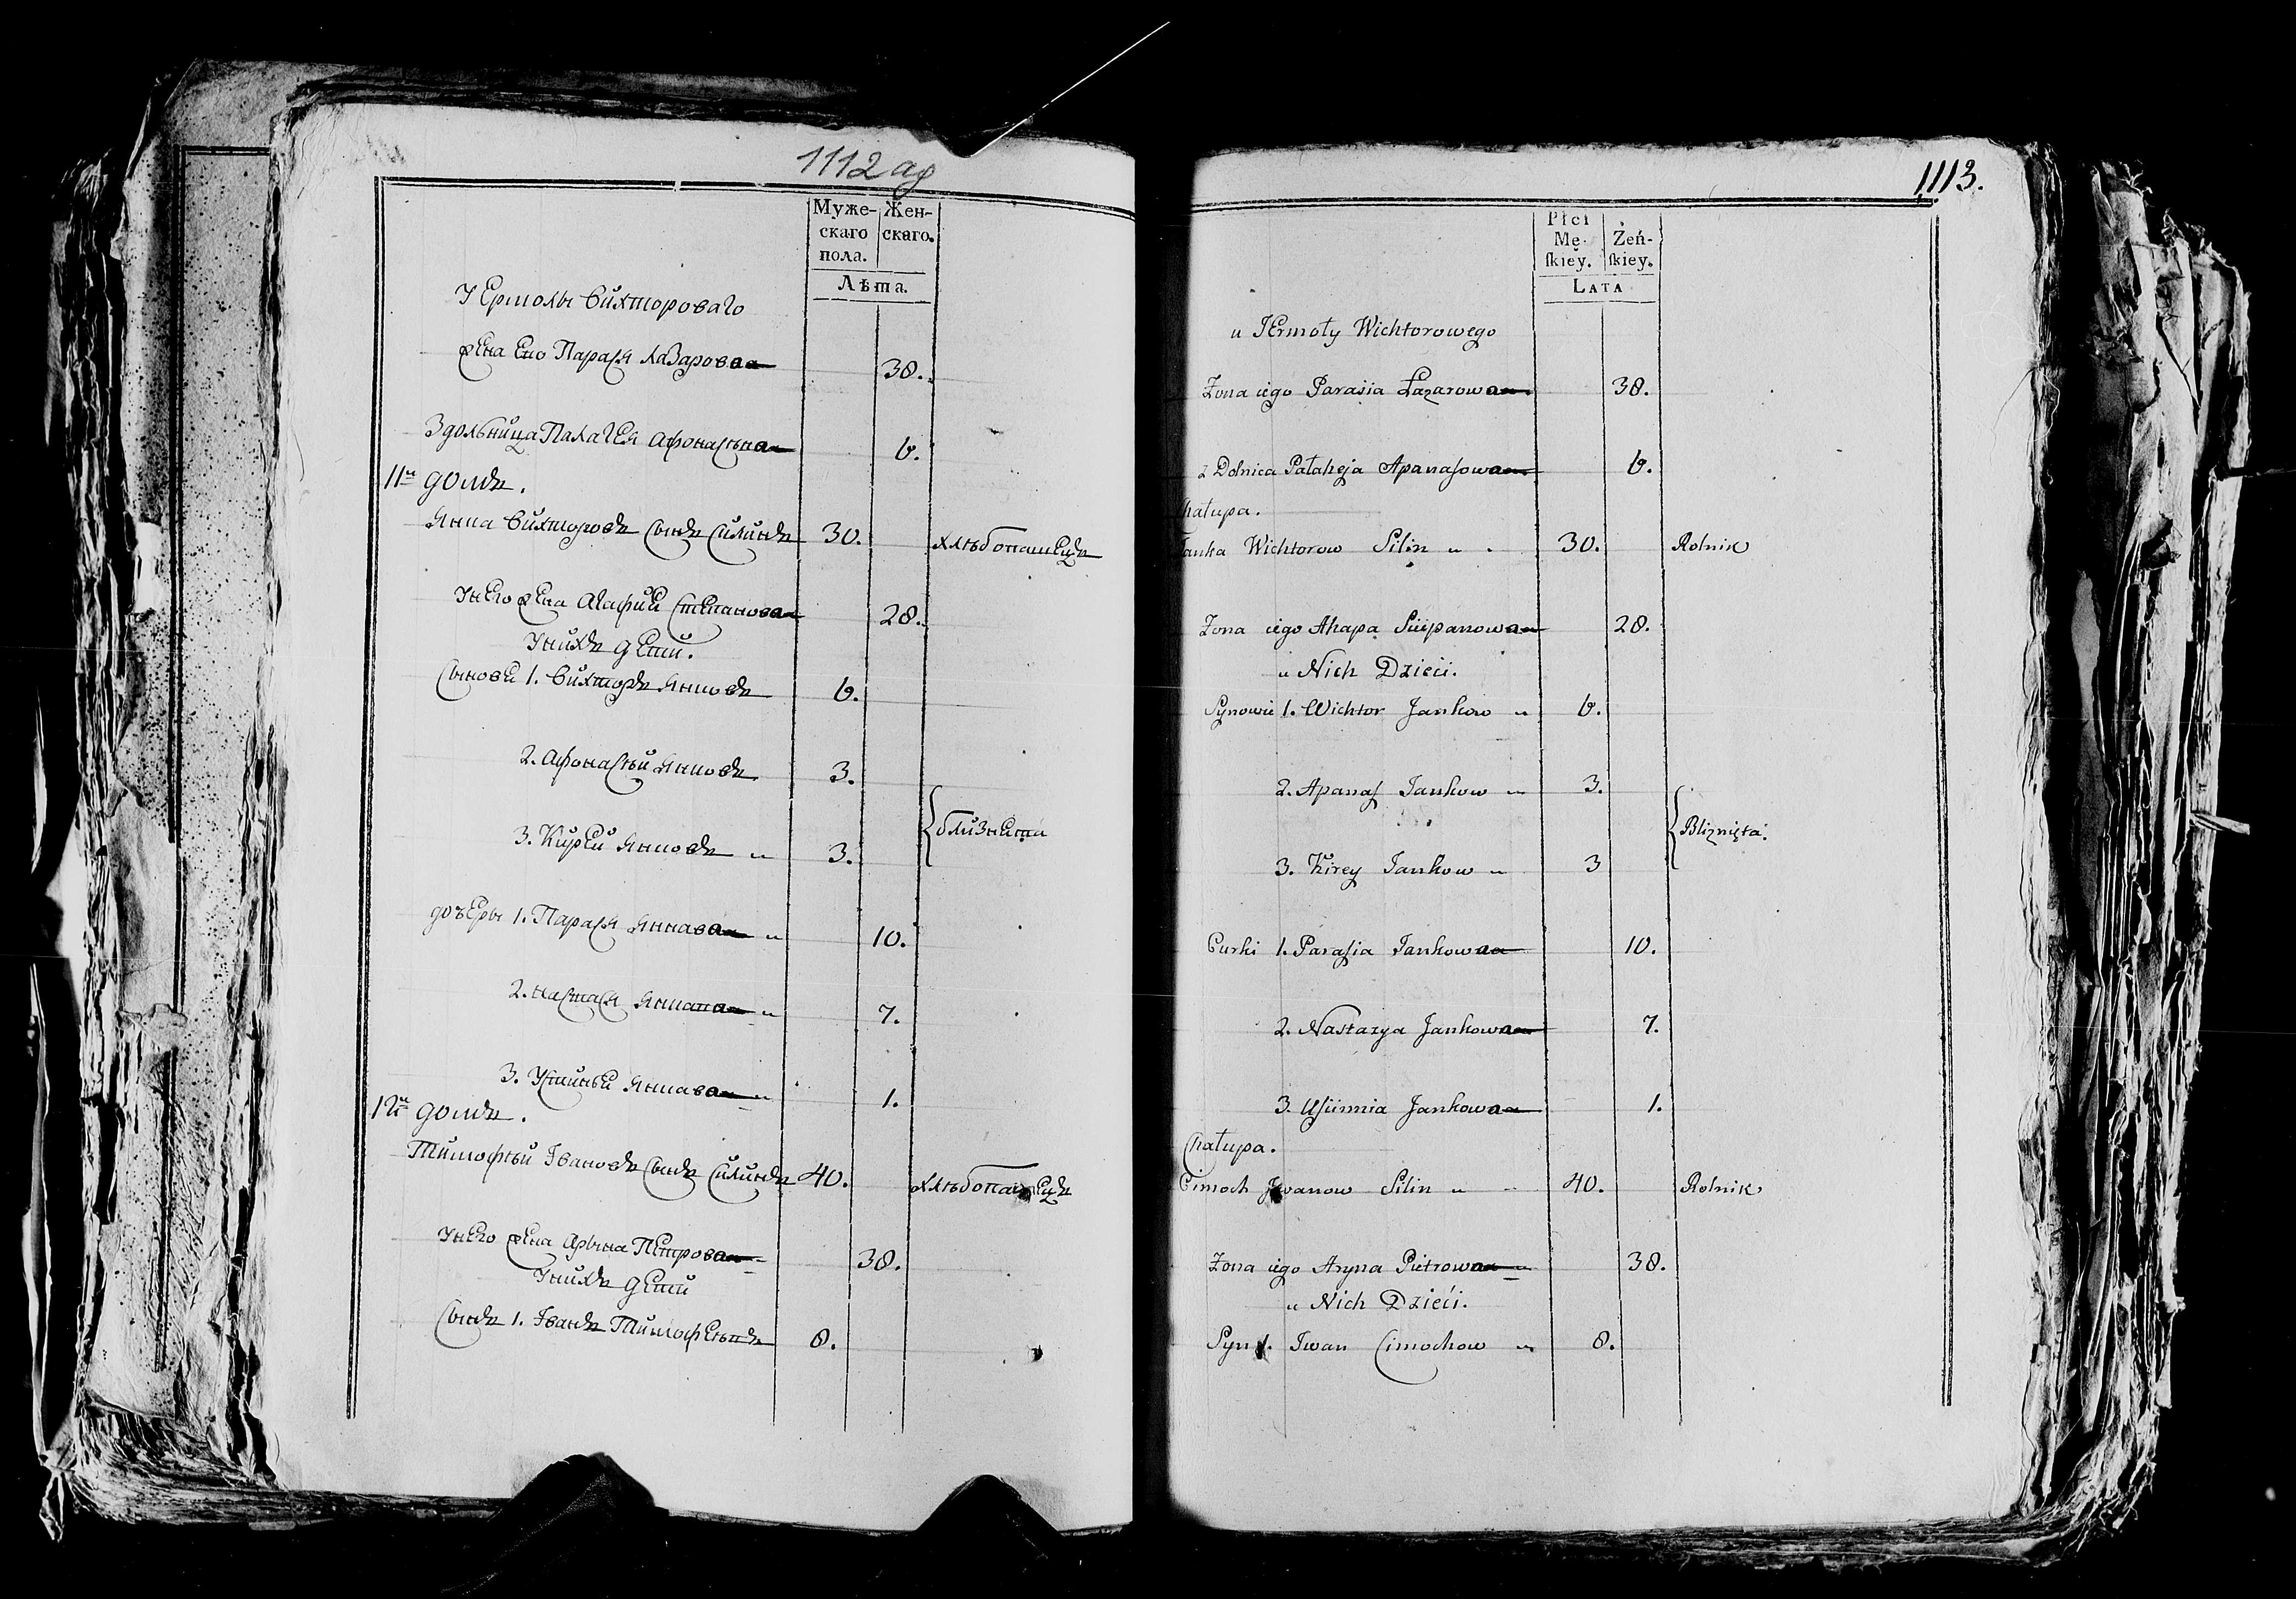 1112 ад
Муже- Жен-
скаго скаго.
пола.
Лѣта.
У Ермолы Вихтороваго
жена его Парася Лазарова 38.
Здольница Палагея Афонасьва 6.
11й домъ.
Янка Вихторовъ сынъ Силинъ 30. хлѣбопашецъ
У него жена Агафия Степанова 28.
У нихъ дети.
Сынови 1. Вихторъ Янковъ 6.
2. Афонасѣй Янковъ 3.
близнета
3. Кирей Янковъ " 3.
дочеры 1. Парася Янкава " 10.
2. Настася Янкава " 7.
3. Янкава " 1.
12й домъ.
Тимофѣй Івановъ сынъ Силинъ 40. хлѣбопашецъ
У него жена Арына Петрова 38.
У нихъ дети
Сынъ 1. Іванъ Тимофеевъ 8.
1113.
Płci
Mę- Żeń-
ſkiey. ſkiey.
LATA
u JErmoły Wichtorowego
Żona iego Parasia Łazarowa 38.
z Dolnica Pałaheja Apanaſowa 6.
Chałupa.
Janka Wichtorow Silin " 30. Rolnik
Żona iego Ahapa Sciepanowa 28.
u Nich Dzieci.
Synowie 1. Wichtor Jankow " 6.
2. Apanaſ Jankow " 3.
Bliznięta.
3. Kirey Jankow " 3
Curki 1. Paraſia Jankowa 10.
2. Nastazya Jankowa 7.
3. Jankowa 1.
Chałupa.
Cimoch Jwanow Silin " 40. Rolnik
Żona iego Aryna Pietrowa 38.
u Nich Dzieći.
Syn 1. Iwan Cimochow " 8.